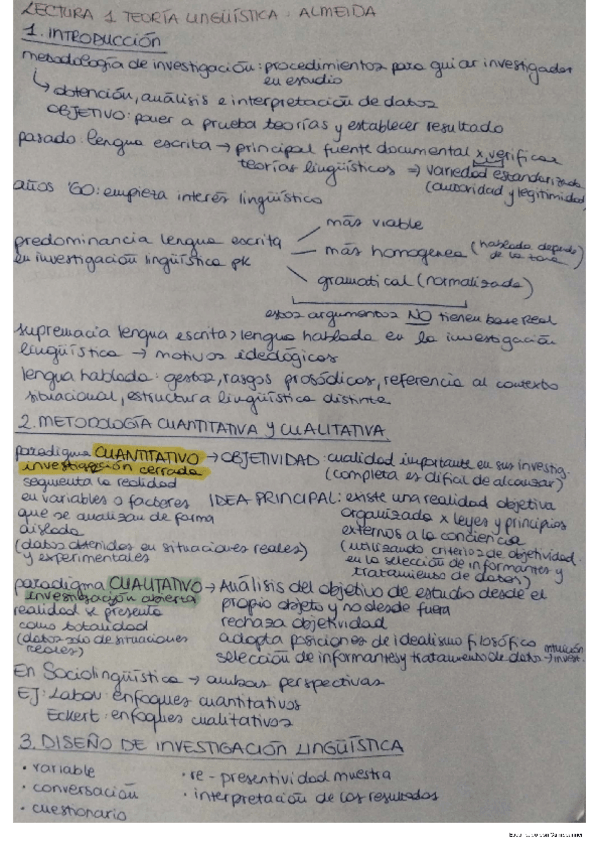 LECTURA 1 TEORÍA LINGÜÍSTICA: ALMEIDA
1. INTRODUCCIÓN
metodología de investigación: procedimientos para guiar investigador
en estudio
↳ obtención, análisis e interpretación de datos
OBJETIVO: poner a prueba teorías y establecer resultado
pasado: lengua escrita → principal fuente documental x verificar
teorías lingüísticas ⇒ variedad estandarizada
(autoridad y legitimidad)
años '60: empieza interés lingüístico
más viable
predominancia lengua escrita
en investigación lingüística pk
más homogenea (hablada depende
de la
gramatical (normalizada)
estos argumentos NO tienen base real
supremacía lengua escrita > lengua hablada en la investigación
lingüística → motivos ideológicos
lengua hablada: gestos, rasgos prosódicos, referencia al contexto
situacional, estructura lingüística distinta
2. METODOLOGÍA CUANTITATIVA Y CUALITATIVA
paradigma CUANTITATIVO → OBJETIVIDAD: cualidad importante en sus investig.
investigación cerrada
(completa es difícil de alcanzar)
segmenta la realidad
en variables o factores
que se analizan de forma
aislada
(datos obtenidos en situaciones reales
y experimentales)
IDEA PRINCIPAL: existe una realidad objetiva
organizada x leyes y principios
externos a la conciencia
(utilizando criterios de objetividad
en la selección de informantes y
tratamiento de datos)
paradigma CUALITATIVO → Análisis del objetivo de estudio desde el
investigación abierta
propio objeto y no desde fuera
realidad se presenta
como totalidad
(datos solo de situaciones
reales)
rechaza objetividad
adopta posiciones de idealismo filosófico
selección de informantes y tratamiento de datos → intuición
invest.
En Sociolingüística → ambas perspectivas
EJ: Labov: enfoques cuantitativos
Eckert: enfoques cualitativos
3. DISEÑO DE INVESTIGACIÓN LINGÜÍSTICA
· variable
· conversación
· cuestionario
· re-presentividad muestra
· interpretación de los resultados